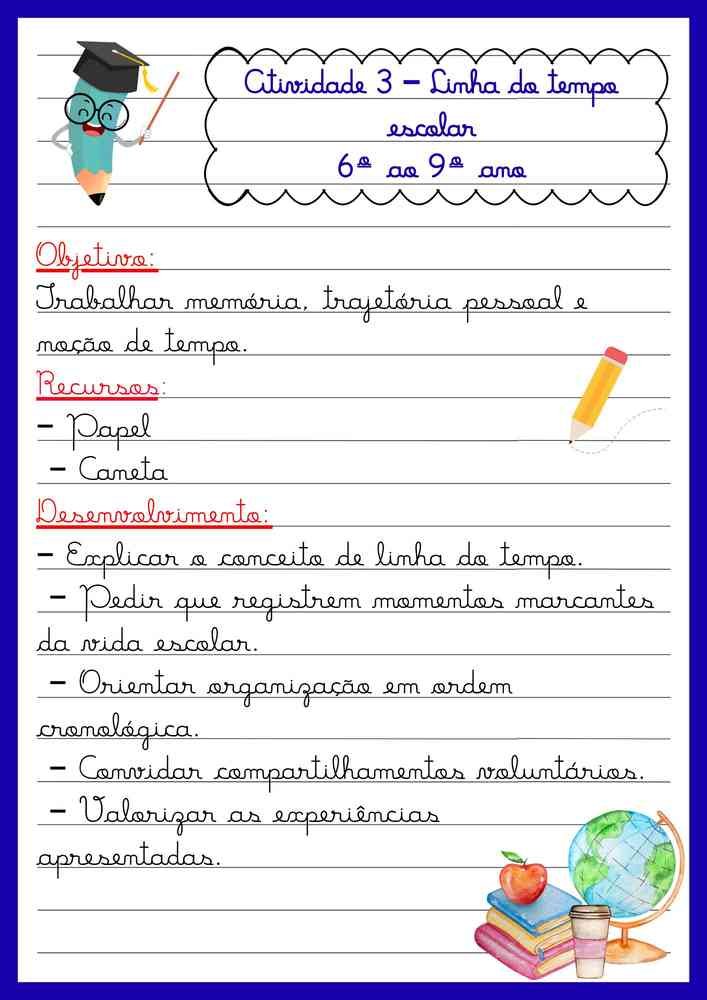 Atividade 3 – Linha do tempo
escolar
6º ao 9º ano
Objetivo:
Trabalhar memória, trajetória pessoal e
noção de tempo.
Recursos:
– Papel
– Caneta
Desenvolvimento:
– Explicar o conceito de linha do tempo.
– Pedir que registrem momentos marcantes
da vida escolar.
– Orientar organização em ordem
cronológica.
– Convidar compartilhamentos voluntários.
– Valorizar as experiências
apresentadas.